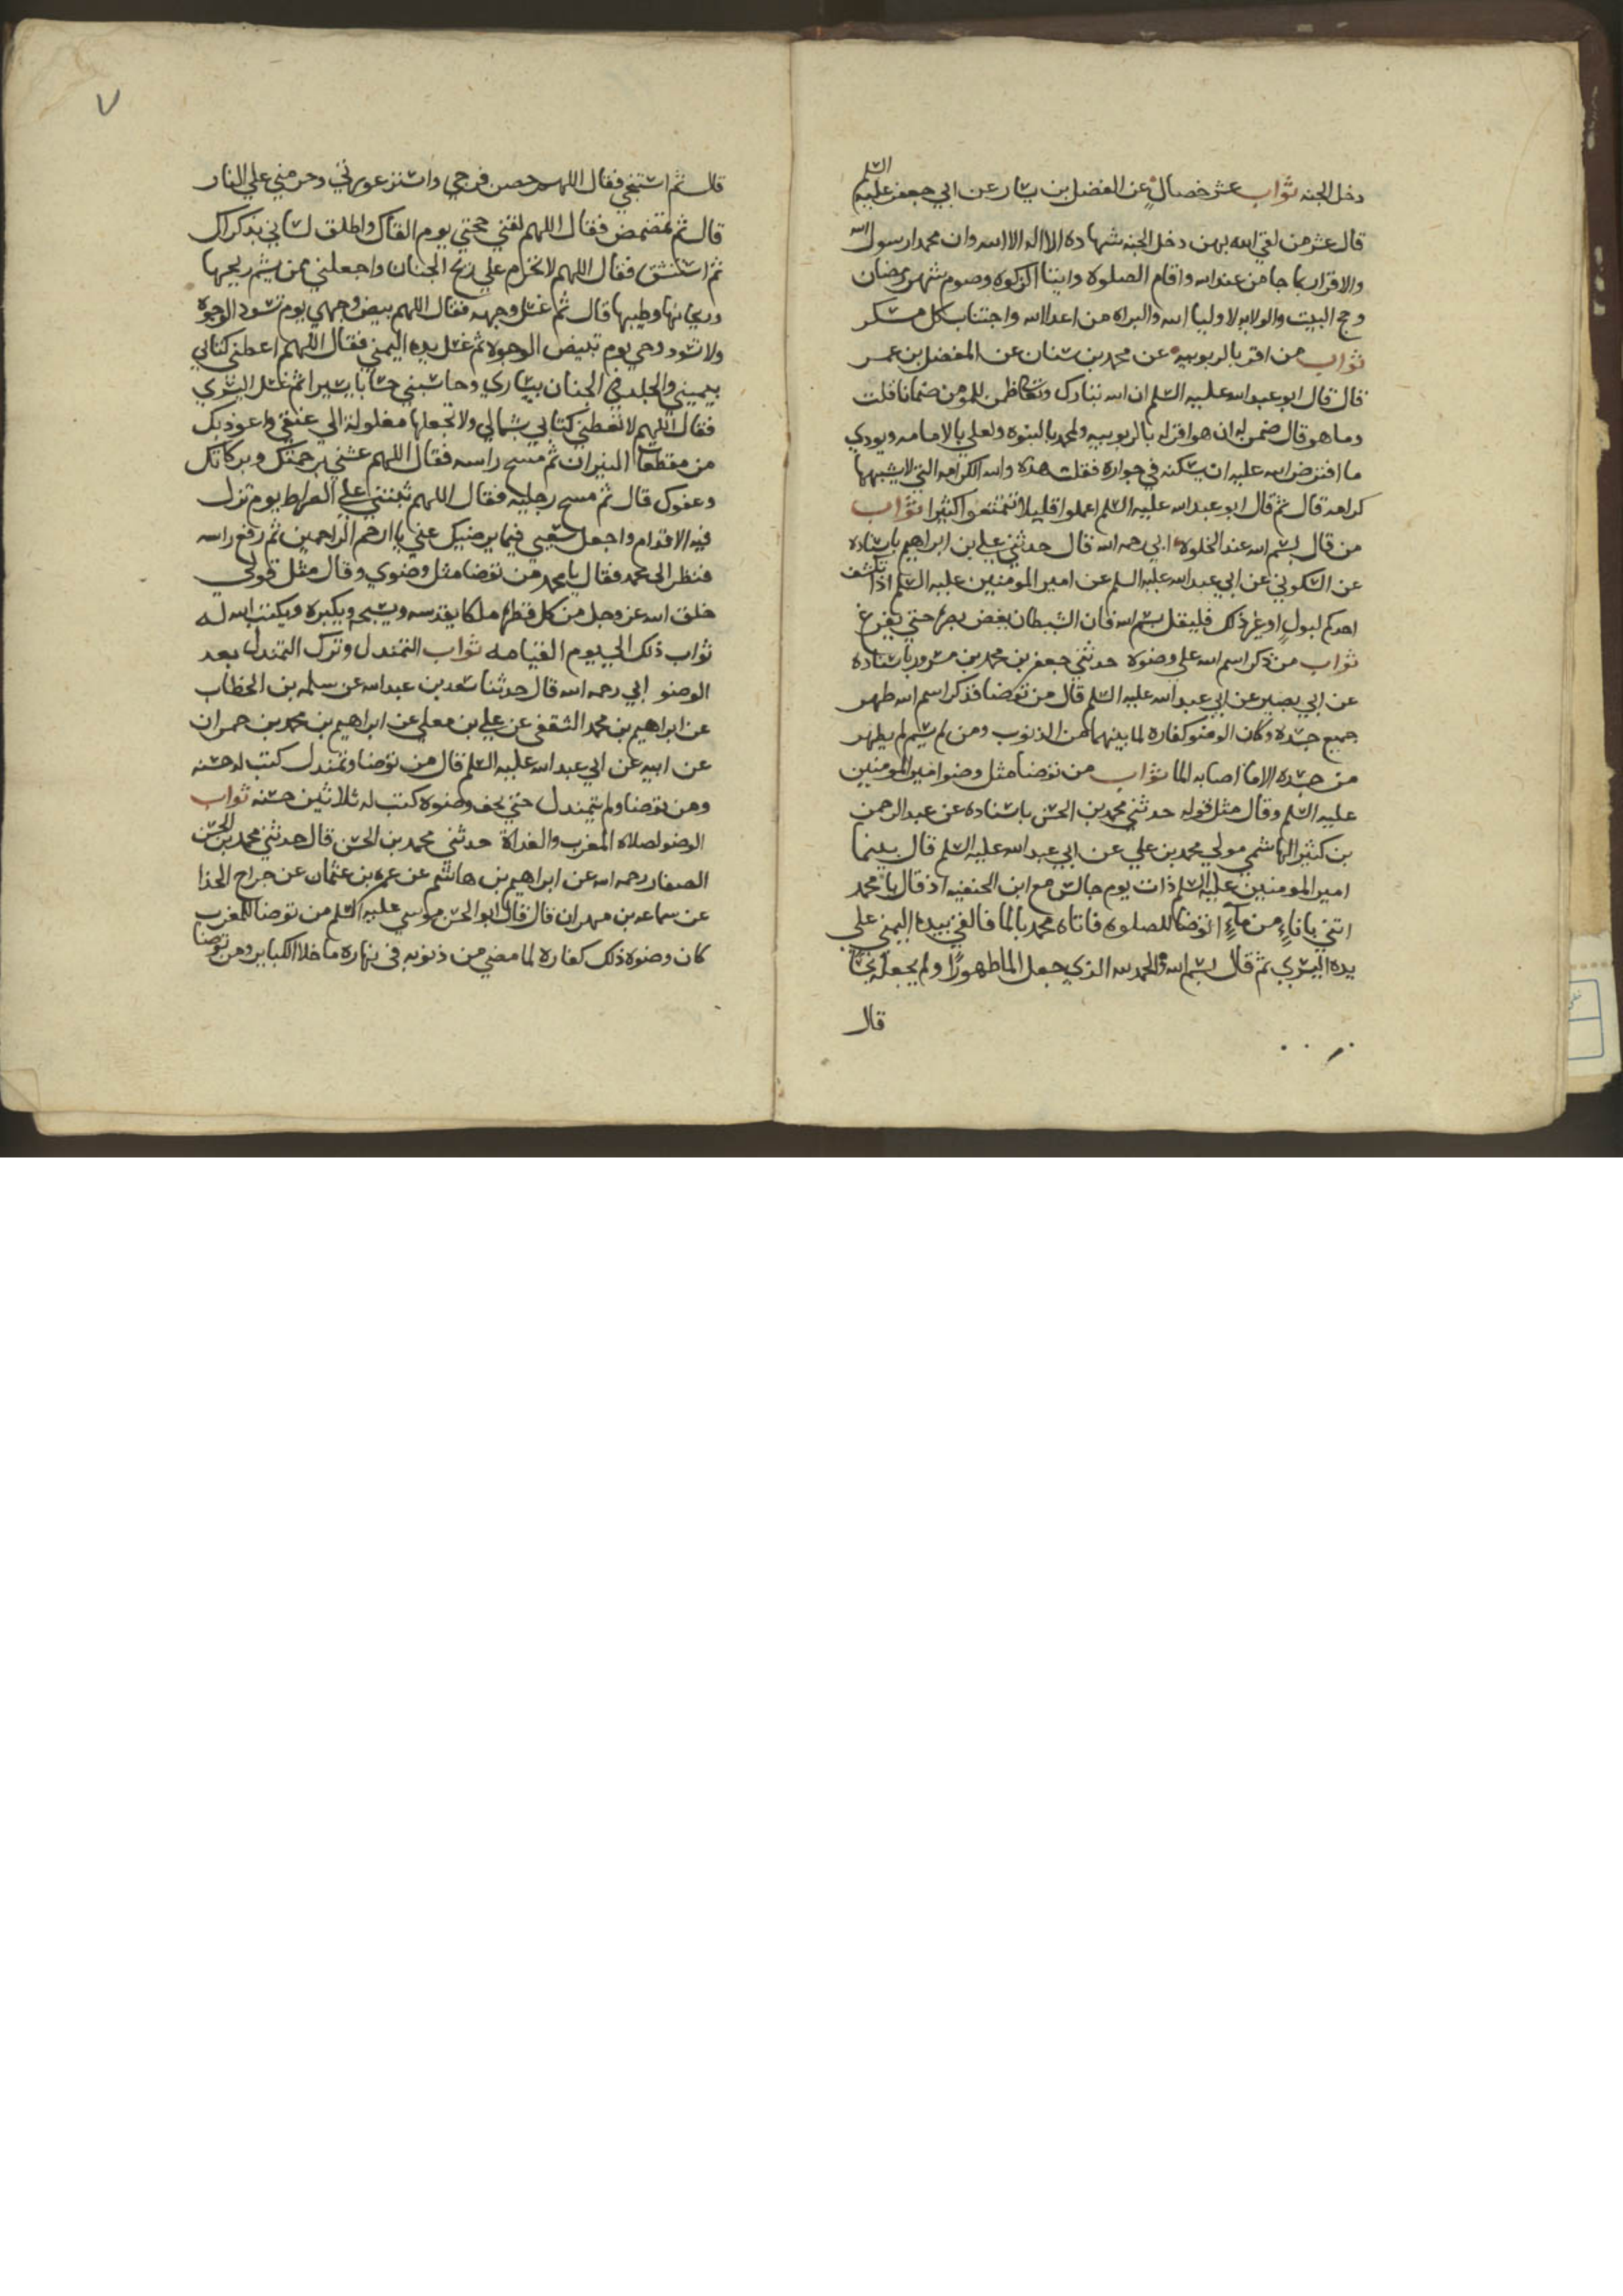 دخل الجنه ثواب عشر خصال عن الفضل بن يسار عن ابي جعفر عليه السلم
قال عشر من لقي الله بهن دخل الجنه شهادة ان لا اله الا الله وان محمدا رسول الله
والاقرار بما جا من عند الله واقام الصلوة وايتا الزكوة وصوم شهر رمضان
وحج البيت والولايه لاوليا الله والبراه من اعدا الله واجتناب كل مسكر
ثواب من اقر بالربوبيه عن محمد بن سنان عن المفضل بن عمر
قال قال ابو عبد الله عليه السلم ان الله تبارك وتعالي ضمن للمومن ضمانا قلت
وما هو قال ضمن له ان هو اقر له بالربوبيه ولمحمد بالنبوه ولعلي بالامامه ويودي
ما افترض الله عليه ان يسكنه في جواره فقلت هذه والله الكرامه التي لا يشبهها
كرامه قال ثم قال ابو عبد الله عليه السلم اعملوا قليلا تتنعموا كثيرا ثواب
من قال بسم الله عند الخلوه ابي رحمه الله قال حدثني علي بن ابراهيم باسناده
عن السكوني عن ابي عبد الله عليه السلم عن امير المومنين عليه السلم اذا تكشف
احدكم لبول او غير ذلك فليقل بسم الله فان الشيطان يغض بصره حتي يفرغ
ثواب من ذكر اسم الله علي وضوه حدثني جعفر بن محمد بن مسرور باسناده
عن ابي بصير عن ابي عبد الله عليه السلم قال من توضا فذكر اسم الله طهر
جميع جسده وكان الوضو كفاره لما بينهما من الذنوب ومن لم يسم لم يطهر
من جسده الا ما اصابه الما ثواب من توضا مثل وضو امير المومنين
عليه السلم وقال مثل قوله حدثني محمد بن الحسن باسناده عن عبد الرحمن
بن كثير الهاشمي مولي محمد بن علي عن ابي عبد الله عليه السلم قال بينما
امير المومنين عليه السلم ذات يوم جالس مع ابن الحنفيه اذ قال يا محمد
ائتني باناءٍ من مآءٍ اتوضا للصلوه فاتاه محمد بالما فالقي بيده اليمني علي
يده اليسري ثم قال بسم الله والحمد لله الذي جعل الما طهورًا ولم يجعله نجسًا
قال
٧
قال ثم استنجي فقال اللهم حصن فرجي واستر عورتي وحرمني علي النار
قال ثم تمضمض فقال اللهم لقني حجتي يوم القاك واطلق لساني بذكراك
ثم استنشق فقال اللهم لا تحرم علي ريح الجنان واجعلني ممن يشم ريحها
وريحانها وطيبها قال ثم غسل وجهه فقال اللهم بيض وجهي يوم تسود الوجوه
ولا تسود وجهي يوم تبيض الوجوه ثم غسل يده اليمني فقال اللهم اعطني كتابي
بيميني والخلد في الجنان بيساري وحاسبني حسابا يسيرا ثم غسل اليسري
فقال اللهم لا تعطني كتابي بشمالي ولا تجعلها مغلولة الي عنقي واعوذ بك
من مقطعات النيران ثم مسح راسه فقال اللهم غشني برحمتك وبركاتك
وعفوك قال ثم مسح رجليه فقال اللهم ثبتني علي الصراط يوم تزل
فيه الاقدام واجعل سعيي فيما يرضيك عني يا ارحم الراحمين ثم رفع راسه
فنظر الي محمد فقال يا محمد من توضا مثل وضوي وقال مثل قولي
خلق الله عز وجل من كل قطره ملكا يقدسه ويسبحه ويكبره ويكتب الله له
ثواب ذلك الي يوم القيامه ثواب التمندل وترك التمندل بعد
الوضو ابي رحمه الله قال حدثنا سعد بن عبد الله عن سلمه بن الخطاب
عن ابراهيم بن محمد الثقفي عن علي بن معلي عن ابراهيم بن محمد بن حمران
عن ابيه عن ابي عبد الله عليه السلم قال من توضا وتمندل كتب له حسنه
ومن توضا ولم يتمندل حتي يجف وضوه كتب له ثلاثين حسنه ثواب
الوضو لصلاه المغرب والغداة حدثني محمد بن الحسن قال حدثني محمد بن الحسن
الصفار رحمه الله عن ابراهيم بن هاشم عن عمرو بن عثمان عن جراح الحذا
عن سماعه بن مهران قال قال ابو الحسن موسي عليه السلم من توضا للمغرب
كان وضوه ذلك كفاره لما مضي من ذنوبه في نهاره ما خلا الكباير ومن توضا